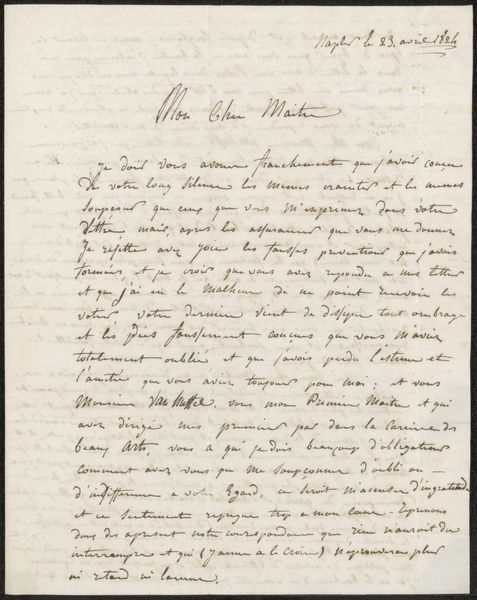 Naples le 23. avril 1824
Mon Cher Maitre
Je dois vous avouer franchement que j'avois conçu
de votre long silence les memes craintes et les memes
soupçons que ceux que vous m'exprimez dans votre
lettre mais, après les assurances que vous me donnez
Je rejette avec joie les fausses preventions que j'avois
formées, et je crois que vous avez repondu a mes lettres
et que j'ai eu le Malheur de ne point recevoir les
votres votre derniere vient de dissiper tout ombrage
et les idées faussement conçues que vous m'aviez
totalement oublié et que j'avois perdu l'estime et
l'amitié que vous aviez toujours pour moi; et vous
Monsieur Van Huffel. vous mon Premier Maitre et qui
avez dirigé mes premiers pas dans la Carriere des
beaux Arts, vous a qui je dois beaucoup d'obligations
comment avez vous pu me soupçonner d'oubli ou
d'indifference a votre Egard, ce seroit m'accuser d'ingratitude
et ce sentiment repugne trop a mon cœur. Reprenons
donc des apresent notre correspondance que rien n'auroit du
interrompre et qui (j'aime a le croire) n'eprouvera plus
ni retard ni lacune.